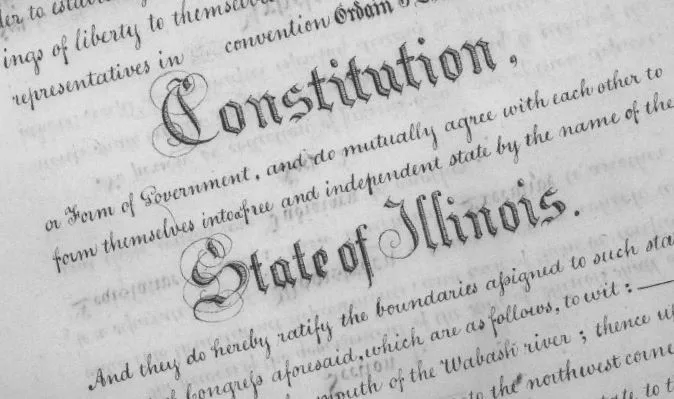 to
ings of liberty to themselve
representatives in convention Ordain
Constitution,
or Form of Government, and do mutually agree with each other to
form themselves into a free and independent state by the name of the
State of Illinois.
And they do hereby ratify the boundaries aſsigned to such sta
Congreſs aforesaid, which are as follows, to wit: —
mouth of the Wabash river; thence u
to the northwest corne
to t